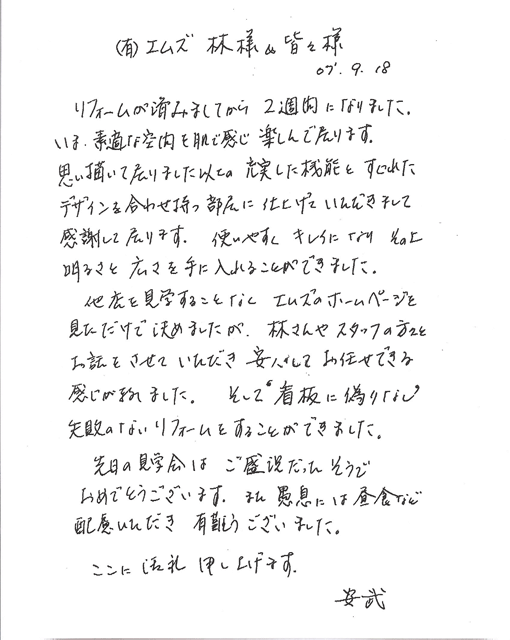 (有)エムズ 林様& 皆々様
07'. 9. 18
リフォームが済みましてから 2週間になりました。
いま、素適な空間を肌で感じ 楽しんで居ります。
思い描いて居りました以上の 充実した機能と すぐれた
デザインを合わせ持つ部屋に 仕上げて いただきまして
感謝して居ります。 使いやすく キレイになり その上
明るさと 広さを手に入れることができました。
他店を見学することなく エムズのホームページを
見ただけで決めましたが、林さんやスタッフの方々と
お話をさせて いただき 安心して お任せできる
感じが致しました。 そして“看板に偽りなし”
失敗のないリフォームをすることができました。
先日の見学会は ご盛況だったそうで
おめでとうございます。また 愚息には 昼食など
配慮いただき 有難うございました。
ここに 御礼 申し上げます。
安武